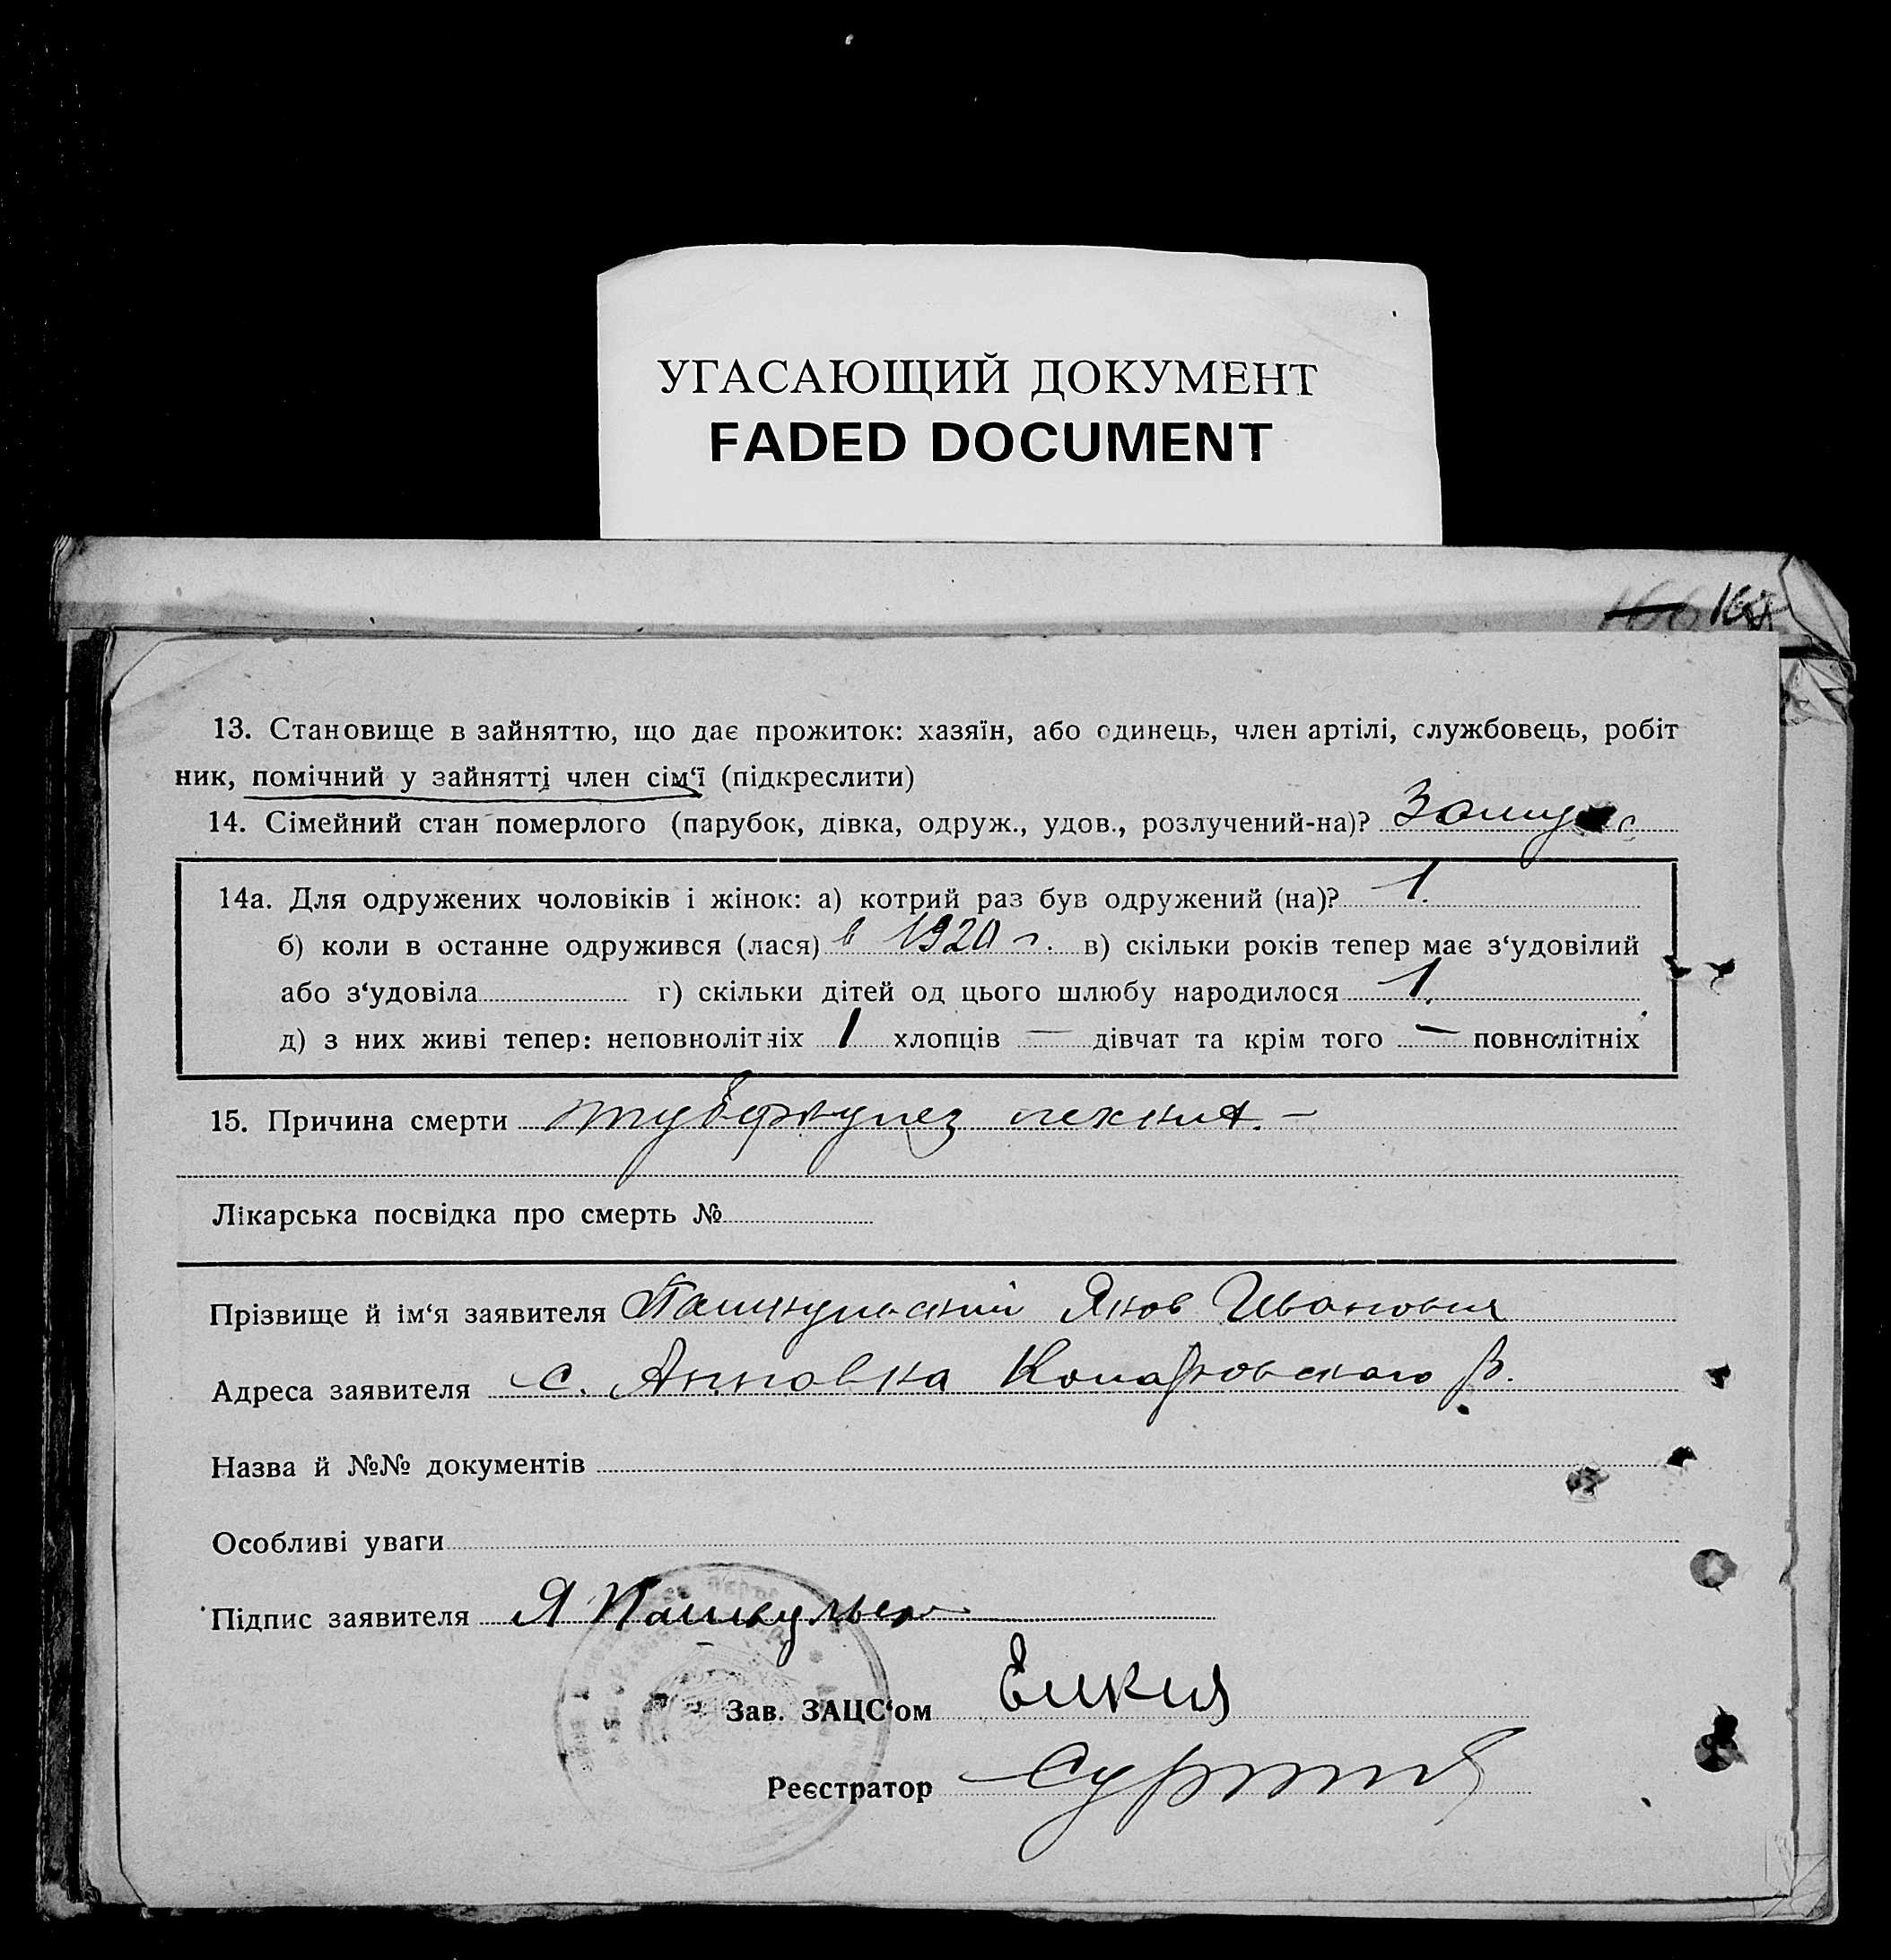 УГАСАЮЩИЙ ДОКУМЕНТ
FADED DOCUMENT
166
13. Становище в зайняттю, що дає прожиток: хазяїн, або одинець, член артілі, службовець, робіт
ник, помічний у зайнятті член сім‘ї (підкреслити)
14. Сімейний стан померлого (парубок, дівка, одруж., удов., розлучений-на)?
14а. Для одружених чоловіків і жінок: а) котрий раз був одружений (на)? 1.
б) коли в останне одружився (лася) в 1920 г. в) скільки років тепер має з‘удовілий
або з‘удовіла г) скільки дітей од цього шлюбу народилося 1.
д) з них живі тепер: неповнолітніх 1 хлопців — дівчат та крім того — повнолітніх
15. Причина смерти туберкулез легких. –
Лікарська посвідка про смерть №
Прізвище й ім‘я заявителя Пашкульский Яков Иванович
Адреса заявителя с. Анновка Комаровского р.
Назва й №№ документів
Особливі уваги
Підпис заявителя Я Пашкульск
Зав. ЗАЦС‘ом
Реєстратор